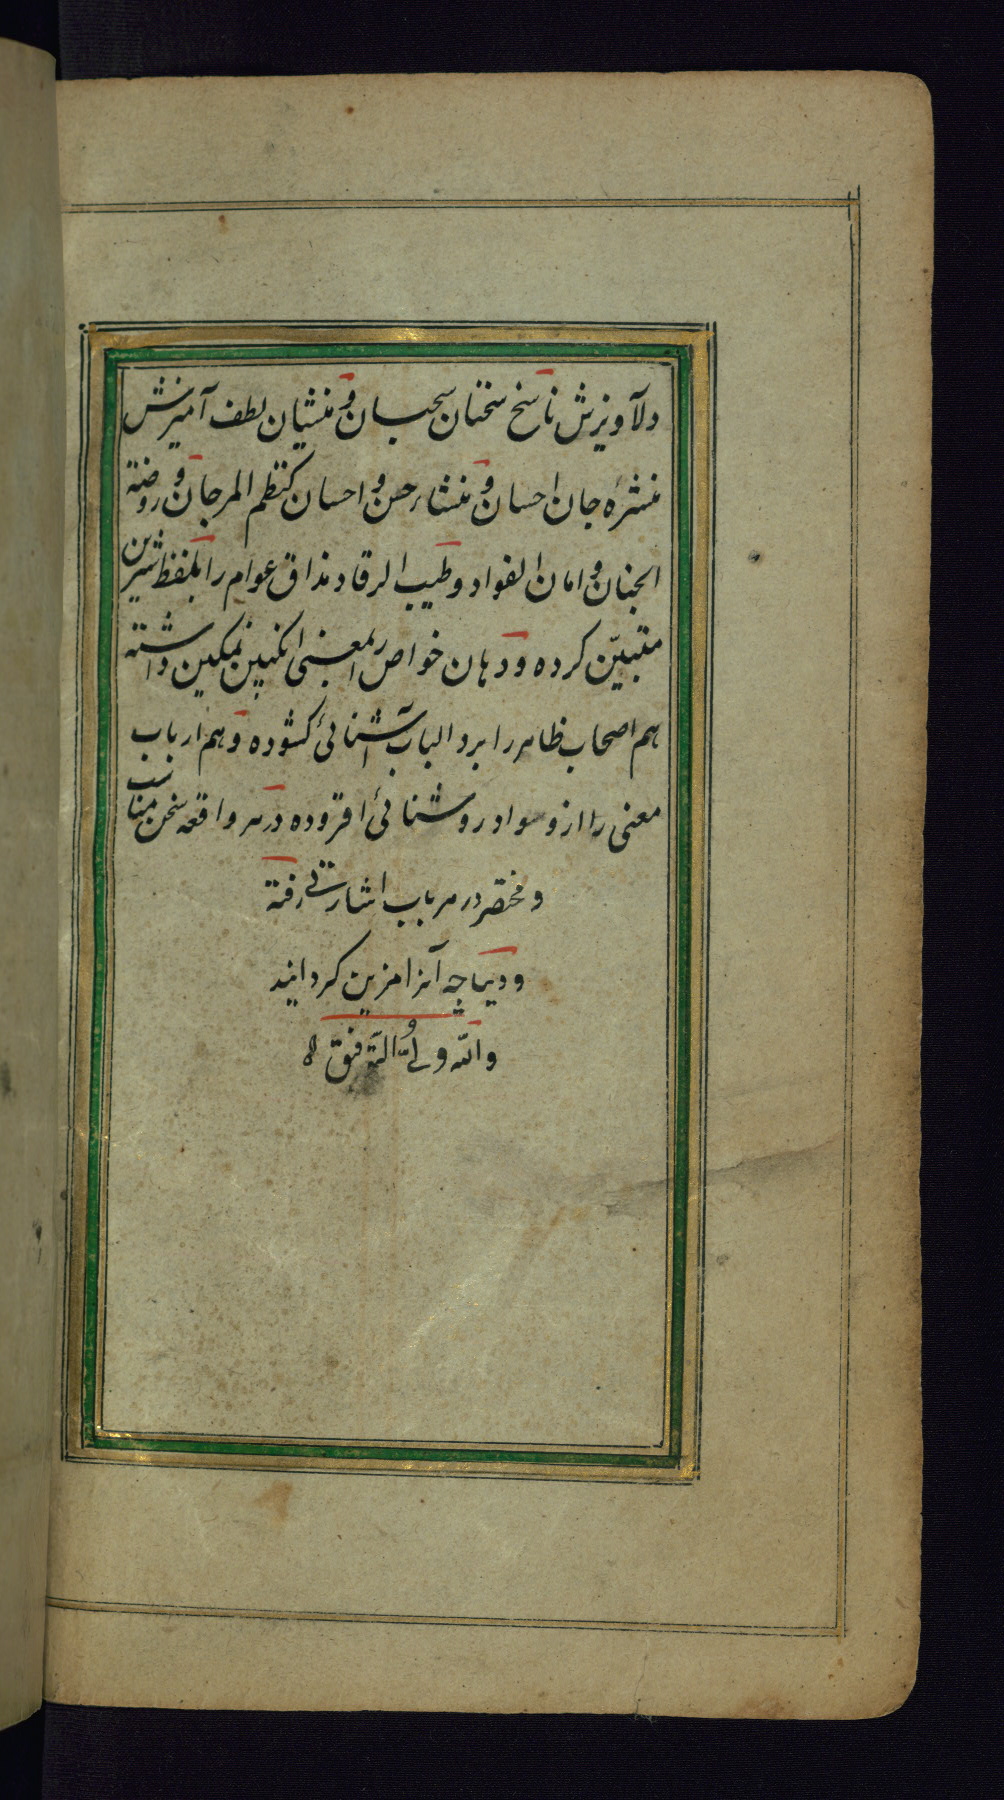 دلآویزش ناسخ سخنان سحبان و منشیان لطف آمیزش
منشرهٔ جان احسان و منشاء حسن و احسان کنظم المرجان و روضة
الجنان و امان الفواد و طیب الرقاد مذاق عوام را بلفظ شیرین
متبیّن کرده و دهان خواص را بمعنی انکبین نمکین داشته
هم اصحاب ظاهر را برو الباب آشنائی کشوده و هم ارباب
معنی را ازو سواد روشنائی افزوده در هر واقعه سخن مناسب
و مختصر در هر باب اشارتی رفته
و دیباجه آنرا مزین کردانید
والله ولی التوفیق